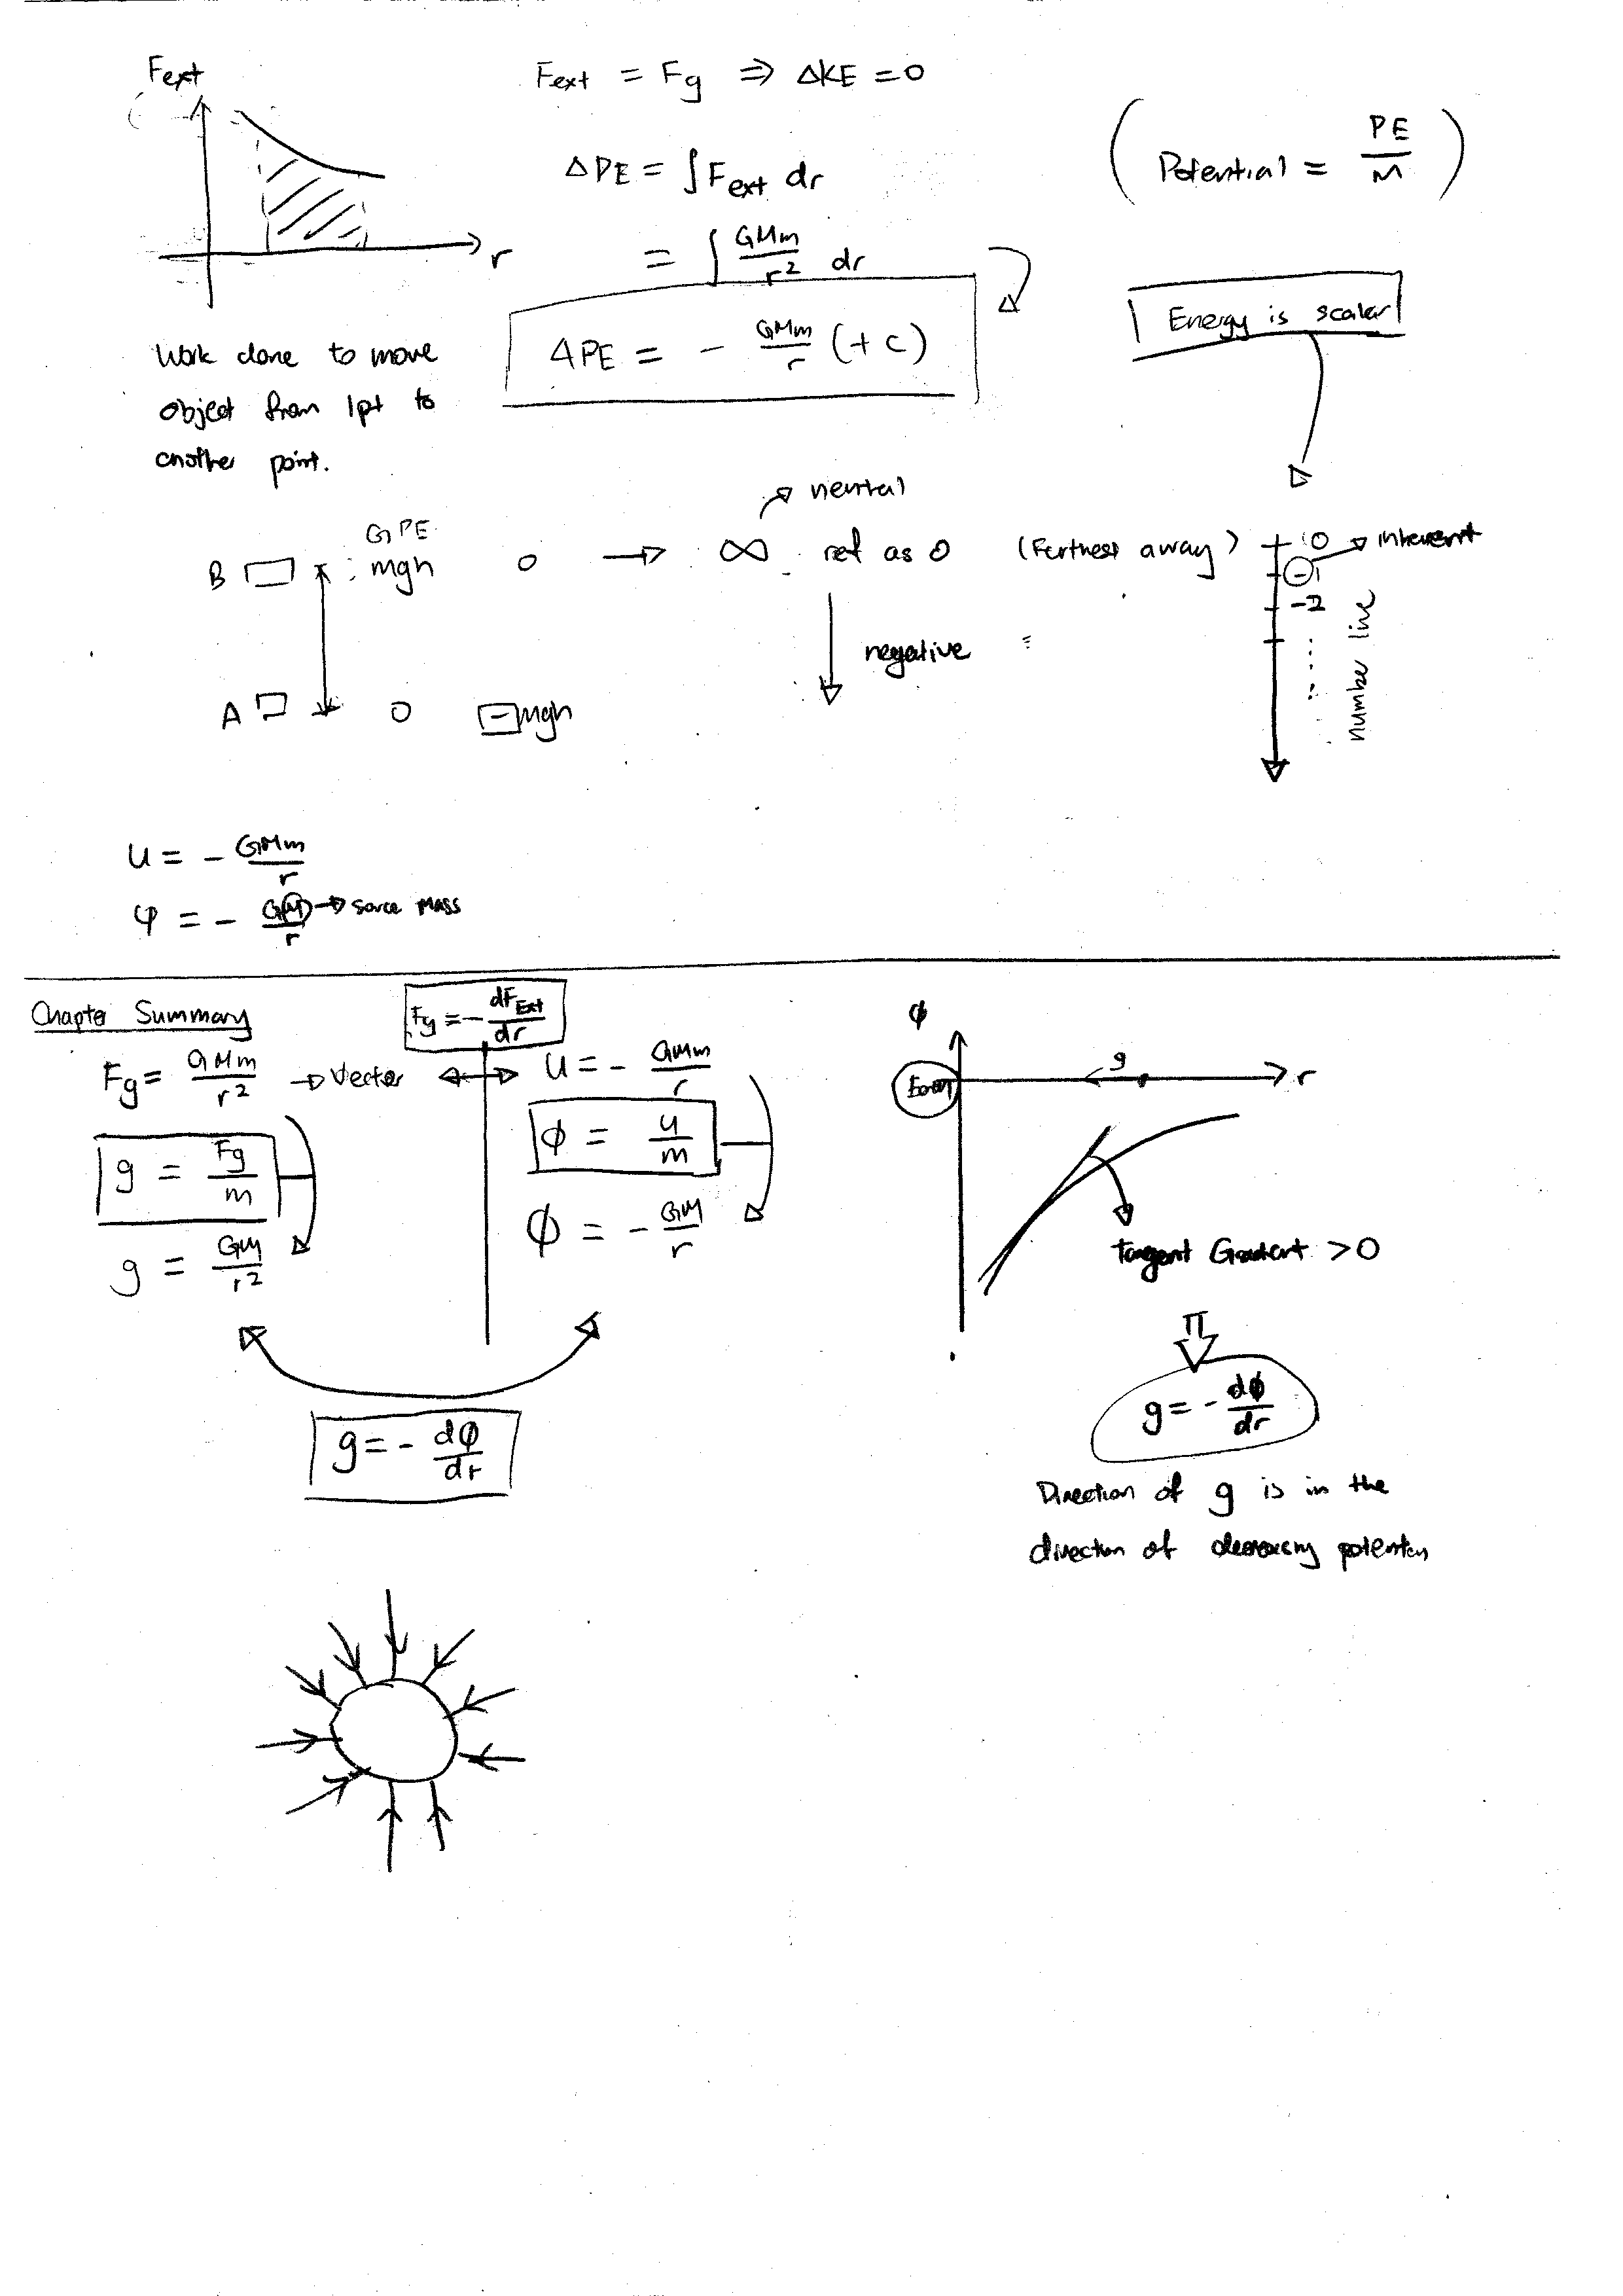 Fext
r
Work done to move
object from 1pt to
another point.
Fext = Fg ⇒ ΔKE = 0
ΔPE = ∫Fext dr
= ∫ GMm/r² dr
ΔPE = - GMm/r (+ c)
(Potential = PE/m)
Energy is scalar
B GPE: mgh 0 → ∞ ref as 0 (Furthest away)
neutral
negative
A 0 -mgh
0 → inherent
-1
-2
number line
U = - GMm/r
φ = - GM/r → source mass
Chapter Summary
Fg = - dFExt/dr
Fg = GMm/r² → Vector
g = Fg/m
g = GM/r²
U = - GMm/r
ϕ = U/m
ϕ = - GM/r
g = - dϕ/dr
ϕ
Earth
g
r
Tangent Gradient > 0
g = - dϕ/dr
Direction of g is in the
direction of decreasing potential